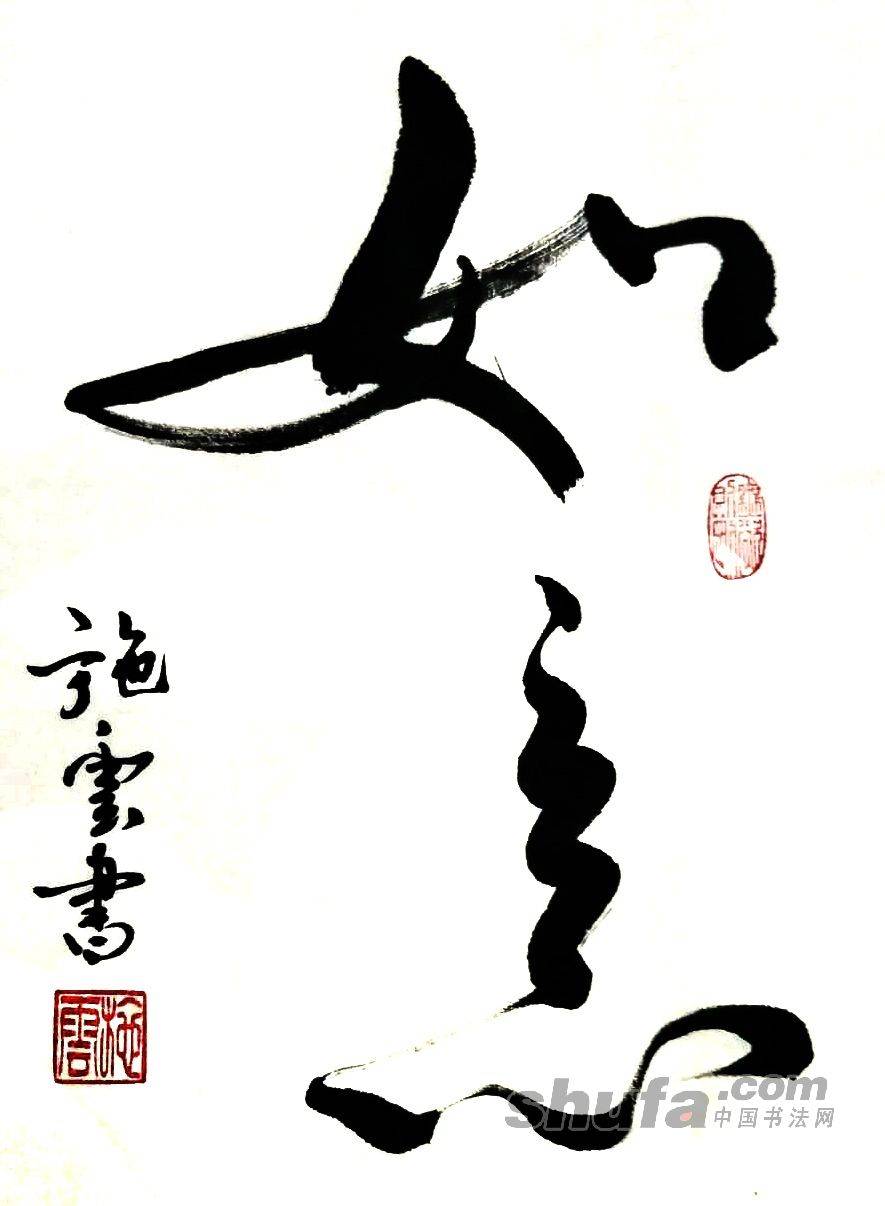 如意
施雲書
施雲
shufa.com
中国书法网